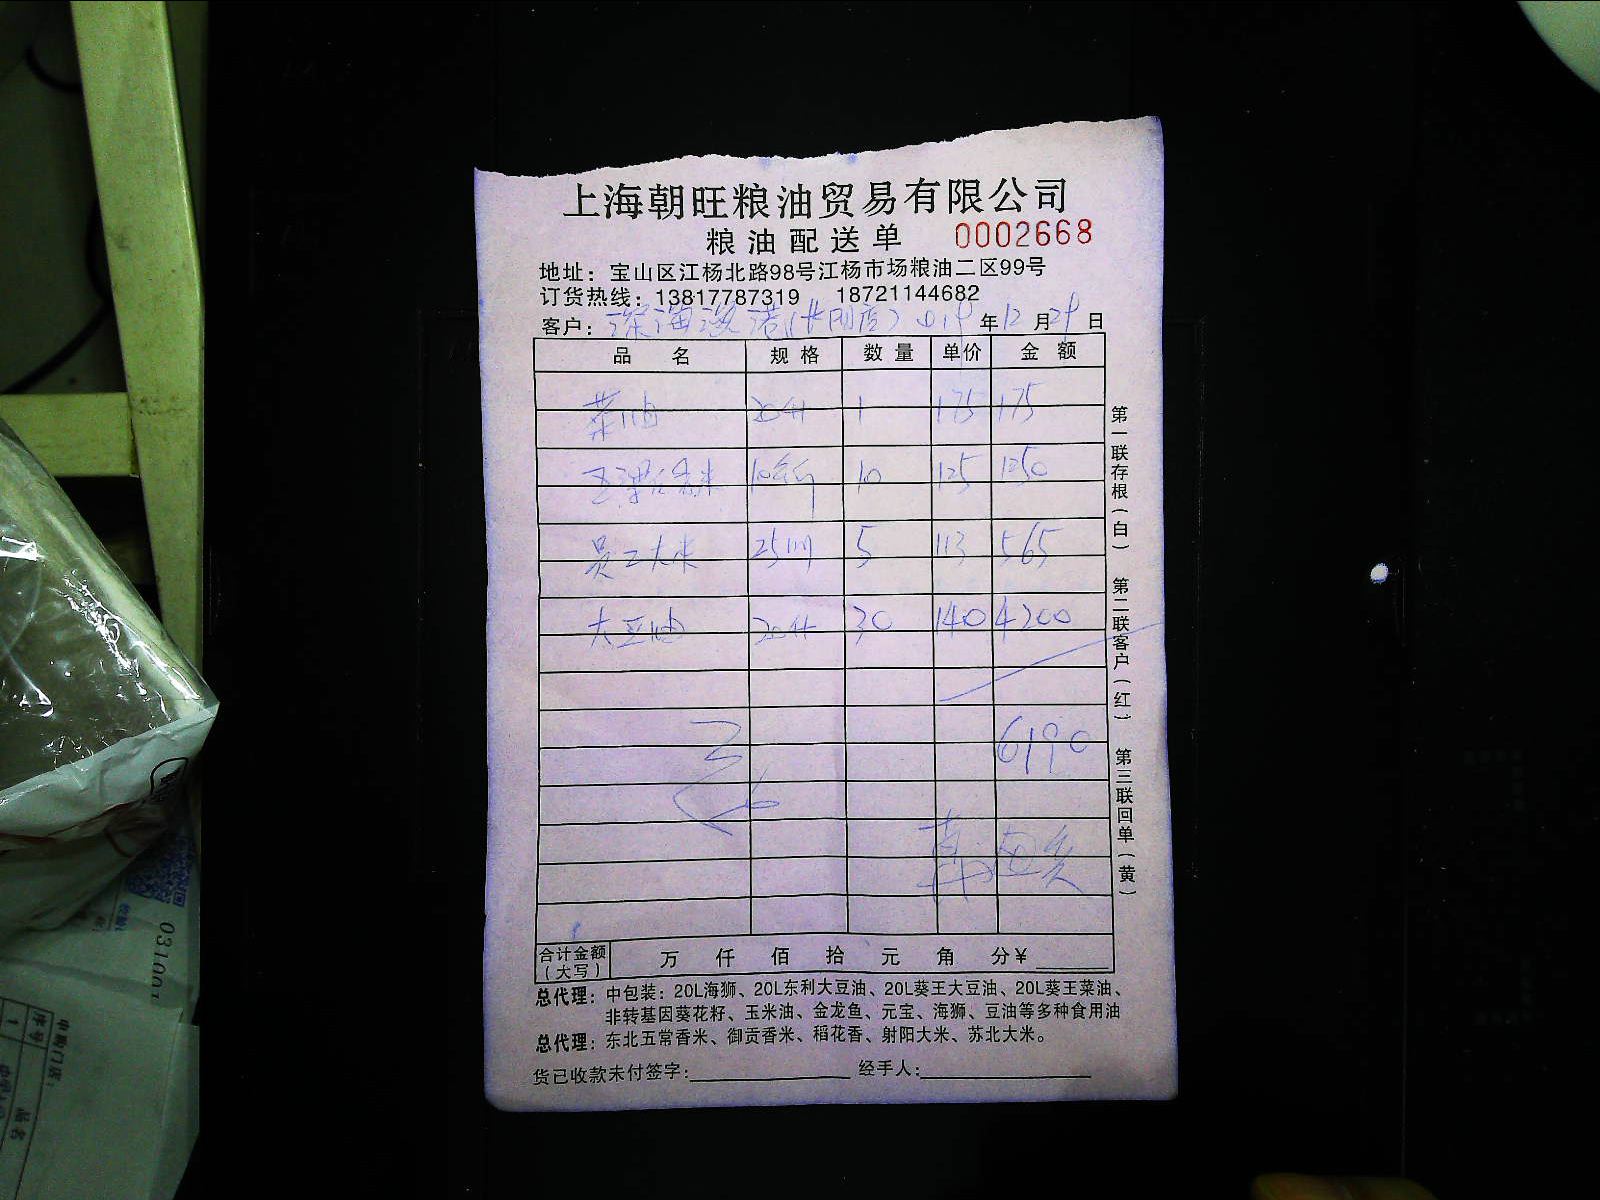 上海朝旺粮油贸易有限公司
粮油配送单 0002668
地址：宝山区江杨北路98号江杨市场粮油二区99号
订货热线：13817787319 18721144682
客户： 深海渔港 年12月29日
品名 规格 数量 单价 金额
菜油 20升 1 175 175
10公斤 10 125 1250
员工大米 25 5 113 565
大豆油 20升 30 140 4200
6190
合计金额（大写） 万 仟 佰 拾 元 角 分¥
总代理：中包装：20L海狮、20L东利大豆油、20L葵王大豆油、20L葵王菜油、
非转基因葵花籽、玉米油、金龙鱼、元宝、海狮、豆油等多种食用油
总代理：东北五常香米、御贡香米、稻花香、射阳大米、苏北大米。
货已收款未付签字： 经手人：
第一联存根（白） 第二联客户（红） 第三联回单（黄）
031001
中购门店：
序号
品名
1